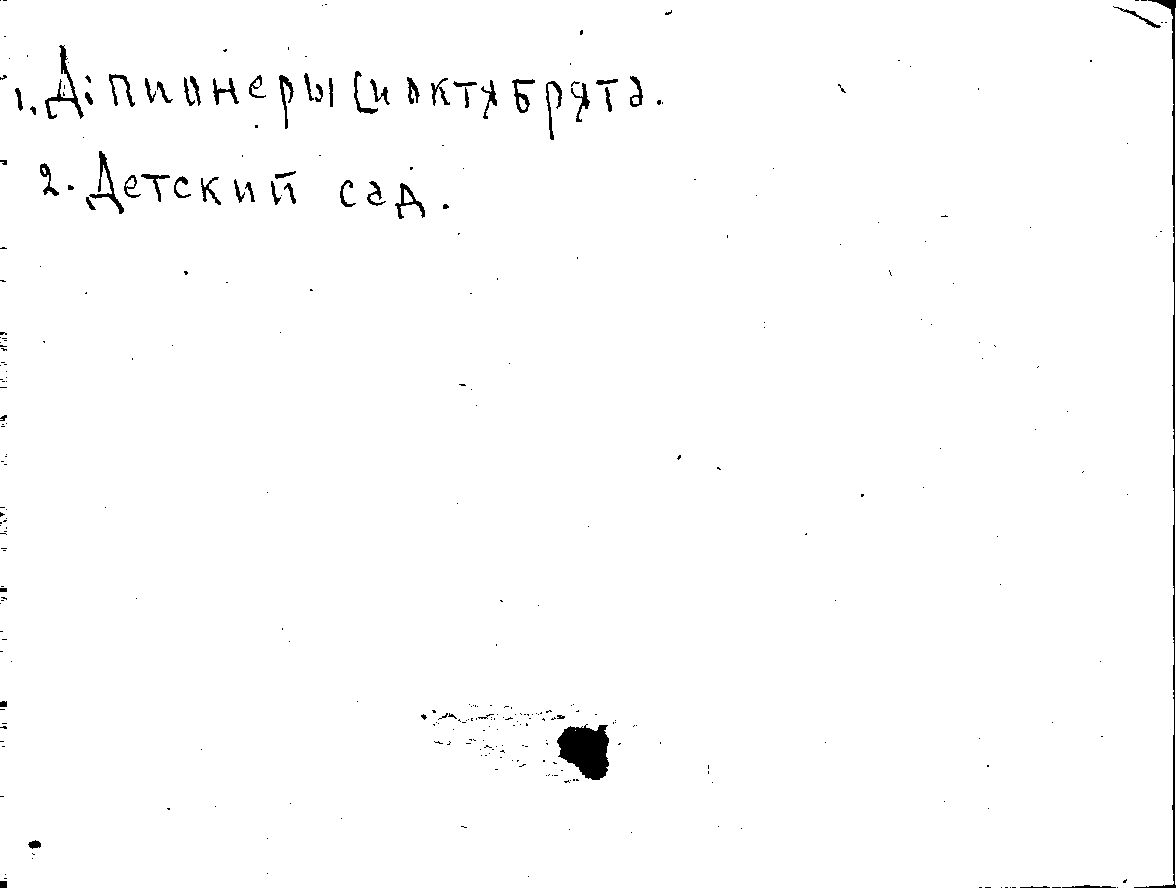 1. Д: пионеры [и октябрята.
2. Детский сад.